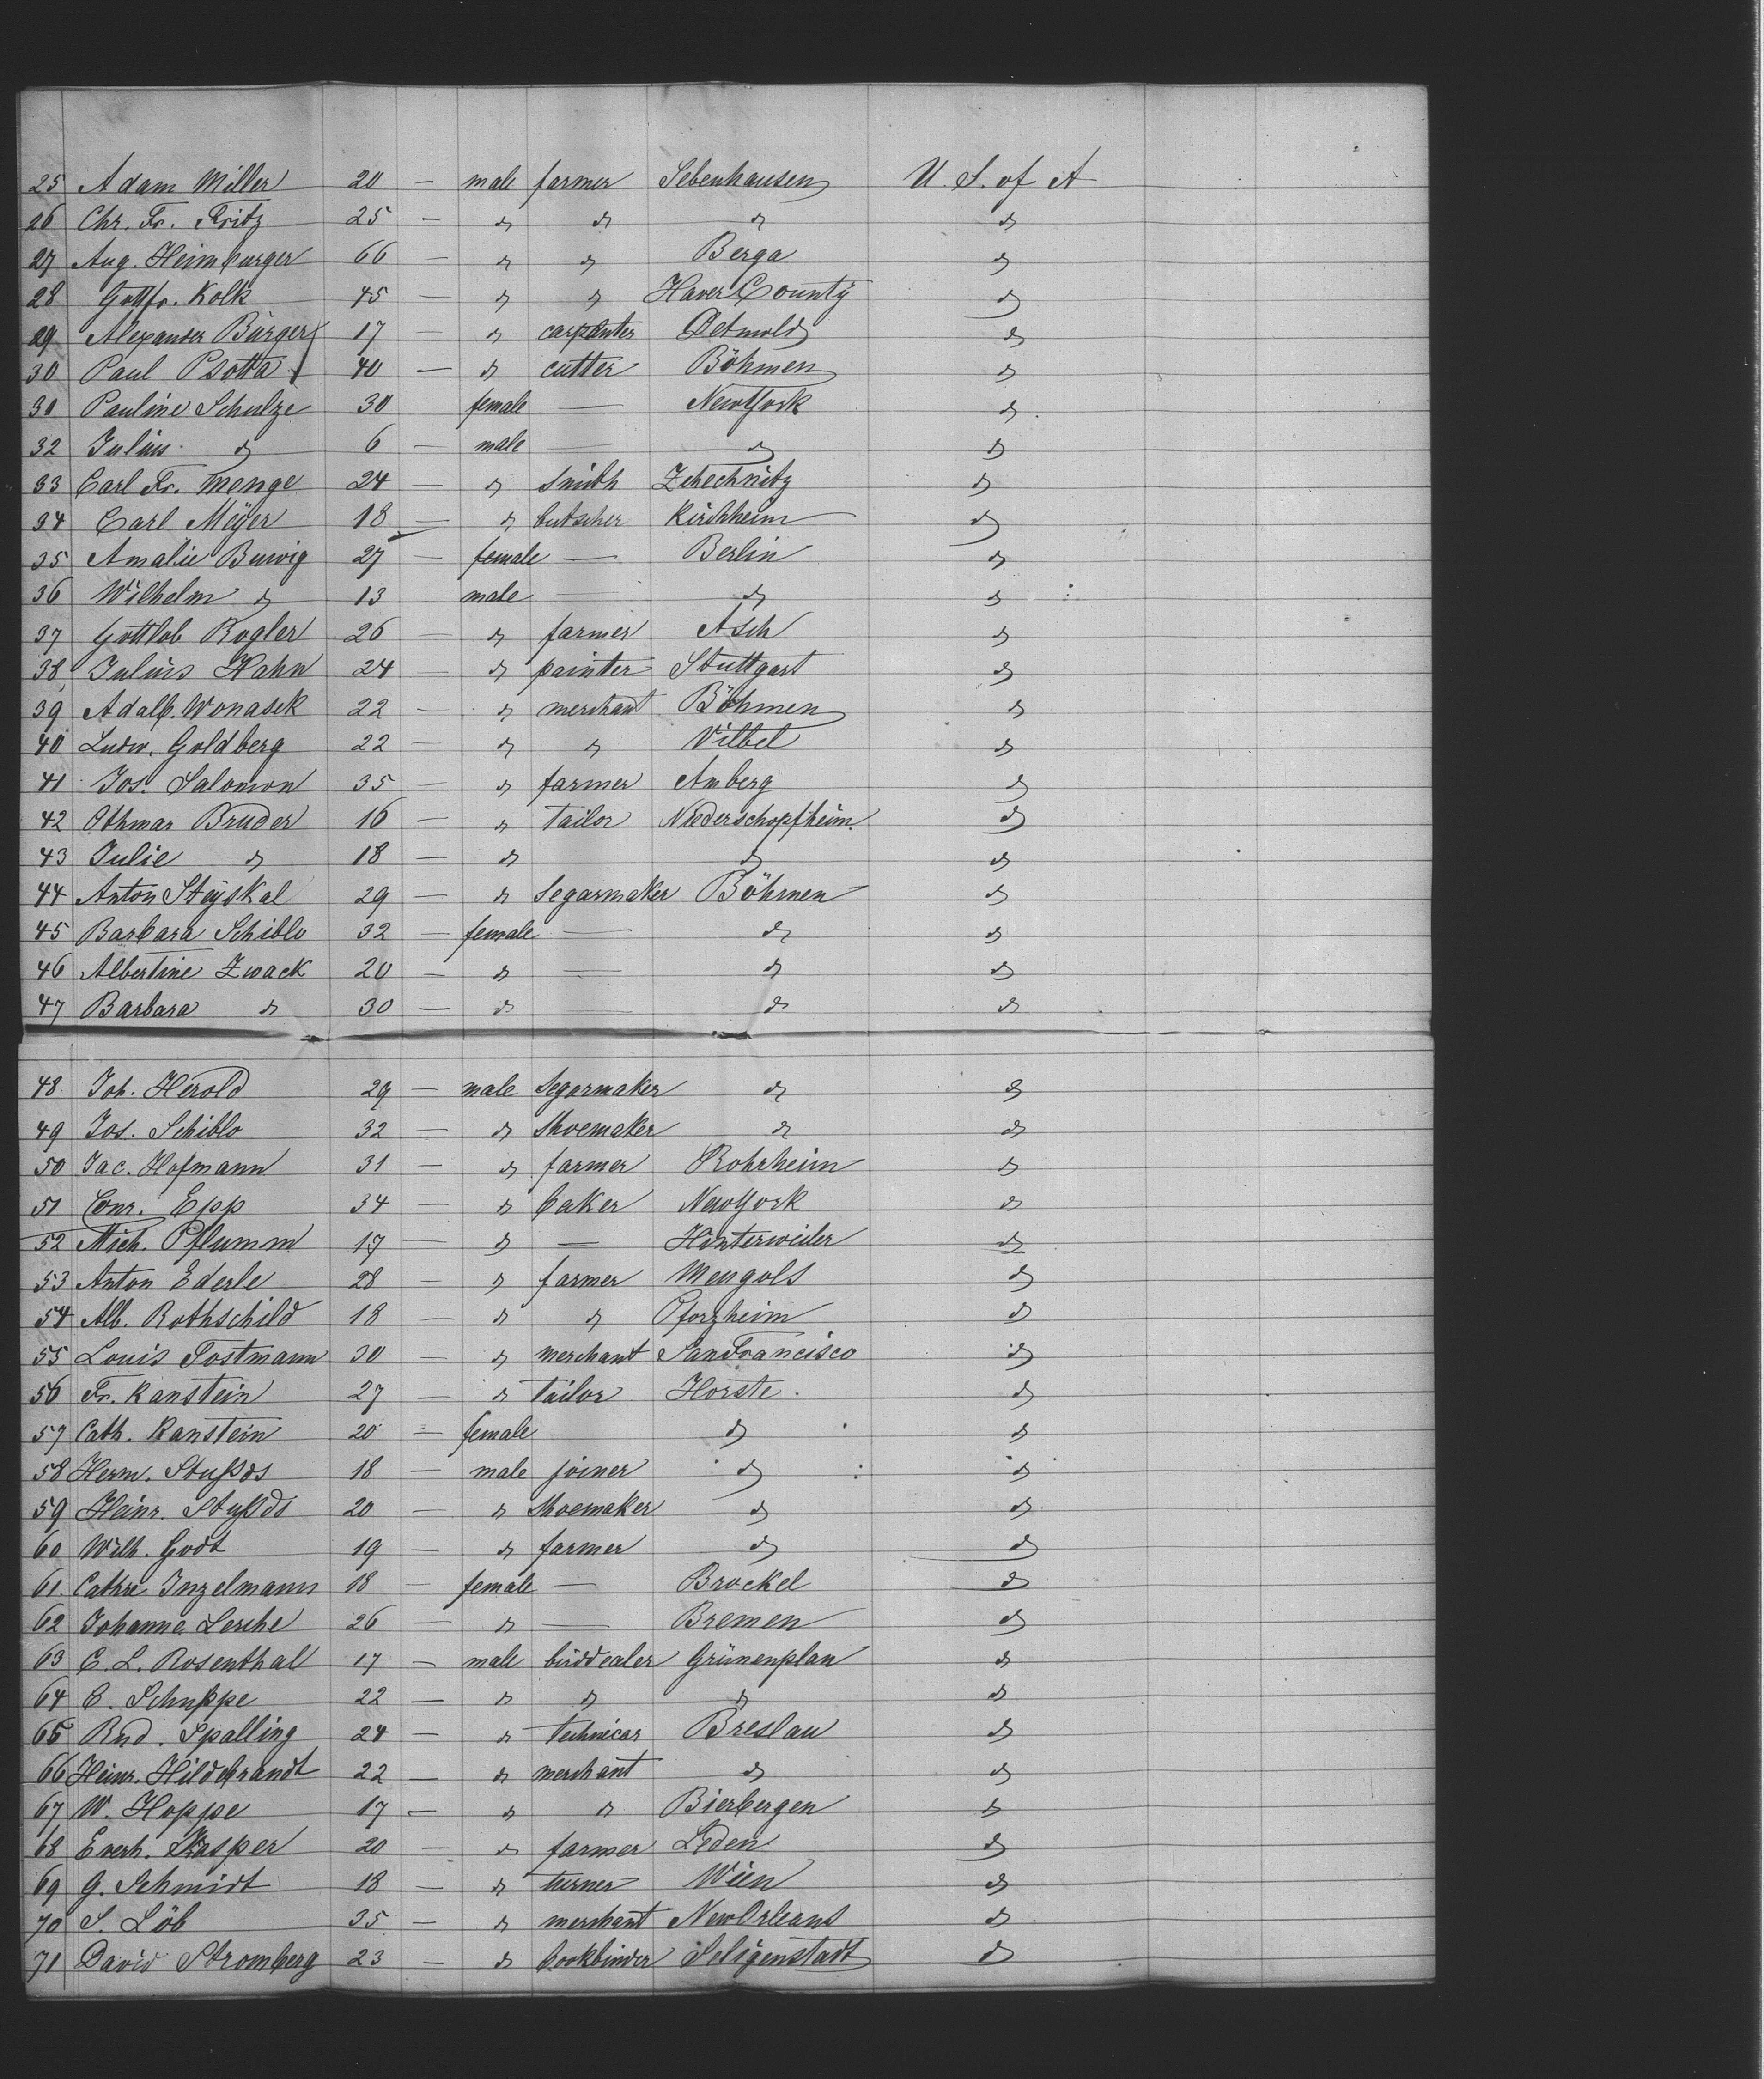 25 Adam Miller 20 — male farmer Sebenhausen U. S. of A
26 Chr. Fr. Fritz 25 — do do do do
27 Aug. Heimburger 66 — do do Berga do
28 Gottfr. Kolk 45 — do do Haver County do
29 Alexander Bürger 17 — do carpenter Detmold do
30 Paul Psotta 40 — do cutter Böhmen do
31 Pauline Schulze 30 female — NewYork do
32 Julius do 6 — male — do do
33 Carl Fr. Menge 24 — do smith Zchechnitz do
34 Carl Meÿer 18 — do butscher Kirchheim do
35 Amalie Burvig 27 — female — Berlin do
36 Wilhelm do 13 male — do do
37 Gottlob Rogler 26 — do farmer Asch do
38 Julius Hahn 24 — do painter Stuttgart do
39 Adalb. Wonasek 22 — do merchant Böhmen do
40 Ludw. Goldberg 22 — do do Vilbel do
41 Jos. Salomon 35 — do farmer Amberg do
42 Othmar Bruder 16 — do tailor Niederschopfheim do
43 Julie do 18 — do do do
44 Anton Steÿskal 29 — do Segarmaker Böhmen do
45 Barbara Schiblo 32 — female — do do
46 Albertine Zwack 20 — do — do do
47 Barbara do 30 — do do do
48 Joh. Herold 29 — male Segarmaker do do
49 Jos. Schiblo 32 — do Shoemaker do do
50 Jac. Hofmann 31 — do farmer Rohrheim do
51 Conr. Epp 34 — do baker NewYork do
52 Mich. Pflumm 17 — do — Hinterweiler do
53 Anton Ederle 28 — do farmer Mengols do
54 Alb. Rothschild 18 — do do Pforzheim do
55 Louis Tostmann 30 — do merchant SanFrancisco do
56 Fr. Kanstein 27 — do tailor Horste do
57 Cath. Kanstein 20 — female do do
58 Herm. 18 — male joiner do do
59 Heinr. 20 — do Shoemaker do do
60 Wilh. Godt 19 — do farmer do do
61 Cathre Inzelmann 18 — female — Brockel do
62 Johanne Lerche 26 — do — Bremen do
63 C. L. Rosenthal 17 — male birddealer Grünenplan do
64 C. Schuppe 22 — do do do do
65 Rud. Spalling 24 — do technicar Breslau do
66 Heinr. Hildebrandt 22 — do merchant do do
67 W. Hoppe 17 — do do Bierbergen do
68 Everh. Kasper 20 — do farmer Leden do
69 G. Schmidt 18 — do turner Wien do
70 S. Löb 35 — do merchant NewOrleans do
71 David Stromberg 23 — do bookbinder Seligenstadt do